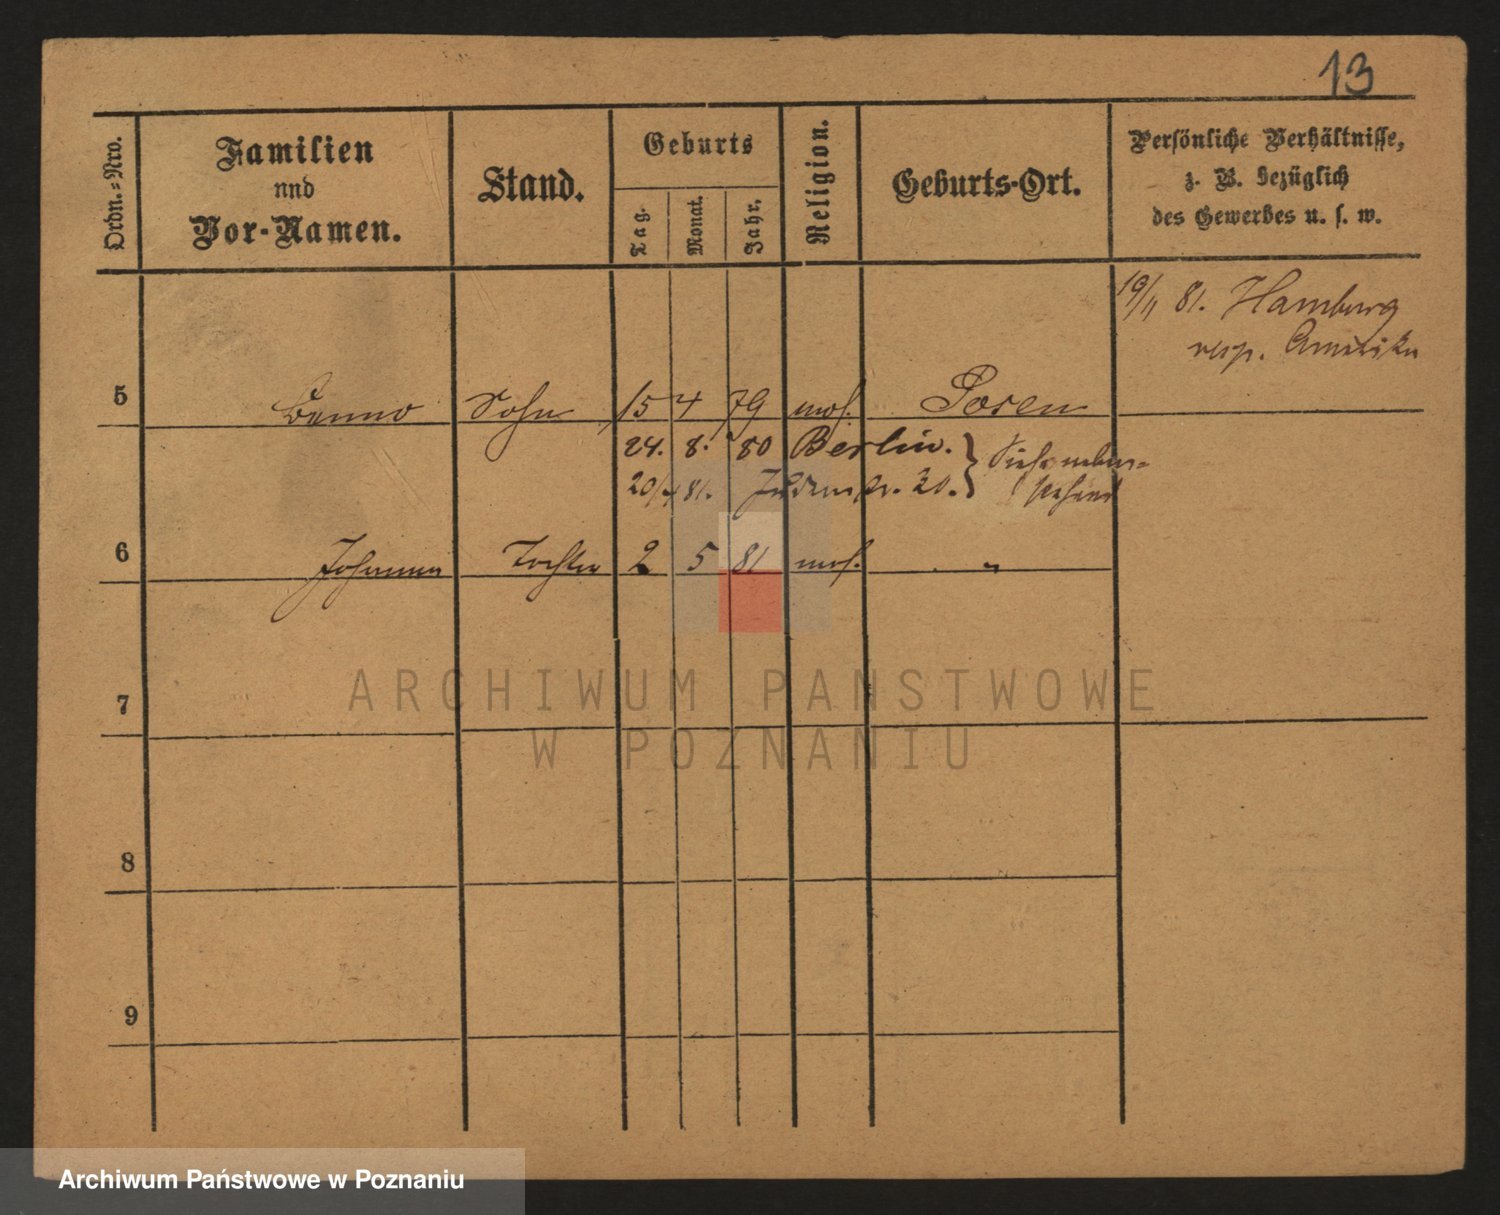 13
Ordn.-Nro.
Familien
nnd
Vor-Namen.
Stand.
Geburts
Tag.
Monat.
Jahr.
Religion.
Geburts-Ort.
Persönliche Verhältnisse,
z. B. bezüglich
des Gewerbes u. s. w.
19/11 81. Hamburg
resp. Amerika
5 Benno Sohn 15 4 79 mos. Posen
24. 8. 80 Berlin.
20/4 81. Jüdenstr. 20.
6 Johanna Tochter 2 5 81 mos. "
7
8
9
ARCHIWUM PAŃSTWOWE
W POZNANIU
Archiwum Państwowe w Poznaniu